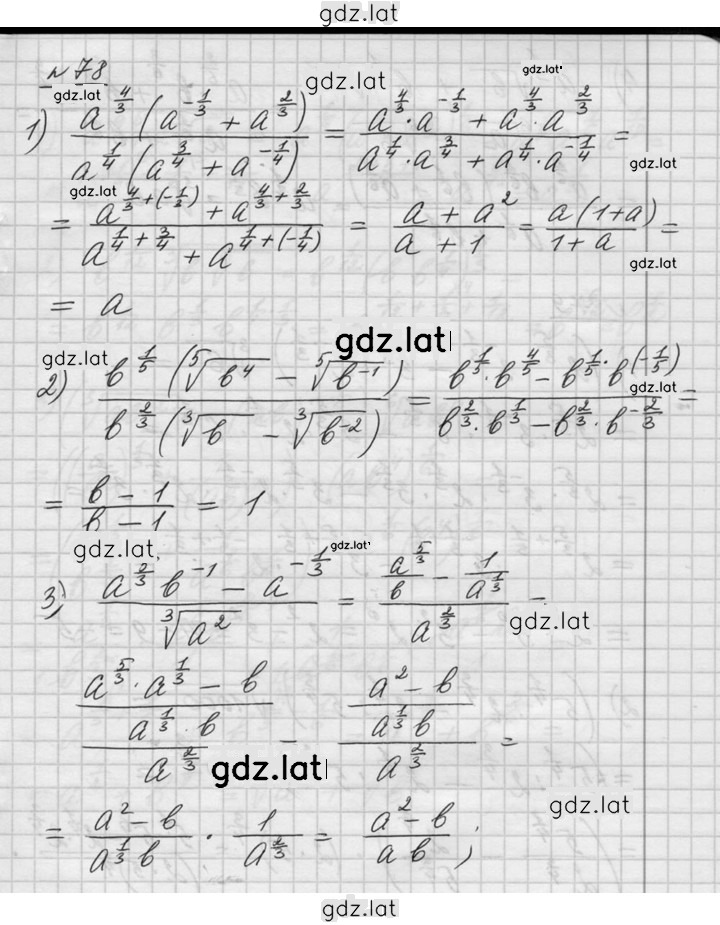 gdz.lat
№78
gdz.lat gdz.lat gdz.lat
1) (a^(4/3) (a^(-1/3) + a^(2/3))) / (a^(1/4) (a^(3/4) + a^(-1/4))) = (a^(4/3) · a^(-1/3) + a^(4/3) · a^(2/3)) / (a^(1/4) · a^(3/4) + a^(1/4) · a^(-1/4)) =
gdz.lat gdz.lat
= (a^(4/3+(-1/3)) + a^(4/3+2/3)) / (a^(1/4+3/4) + a^(1/4+(-1/4))) = (a + a^2) / (a + 1) = (a(1+a)) / (1+a) =
gdz.lat
= a
gdz.lat gdz.lat gdz.lat
2) (b^(1/5) (⁵√(b^4) - ⁵√(b^(-1)))) / (b^(2/3) (³√b - ³√(b^(-2)))) = (b^(1/5) · b^(4/5) - b^(1/5) · b^(-1/5)) / (b^(2/3) · b^(1/3) - b^(2/3) · b^(-2/3)) =
= (b - 1) / (b - 1) = 1
gdz.lat gdz.lat
3) (a^(5/3) b^(-1) - a^(-1/3)) / ³√(a^2) = (a^(5/3)/b - 1/a^(1/3)) / a^(2/3) =
gdz.lat
((a^(5/3) · a^(1/3) - b) / (a^(1/3) · b)) / a^(2/3) = ((a^2 - b) / (a^(1/3) b)) / a^(2/3) =
gdz.lat
= (a^2 - b) / (a^(1/3) b) · 1 / a^(2/3) = (a^2 - b) / (a b) ;
gdz.lat
gdz.lat